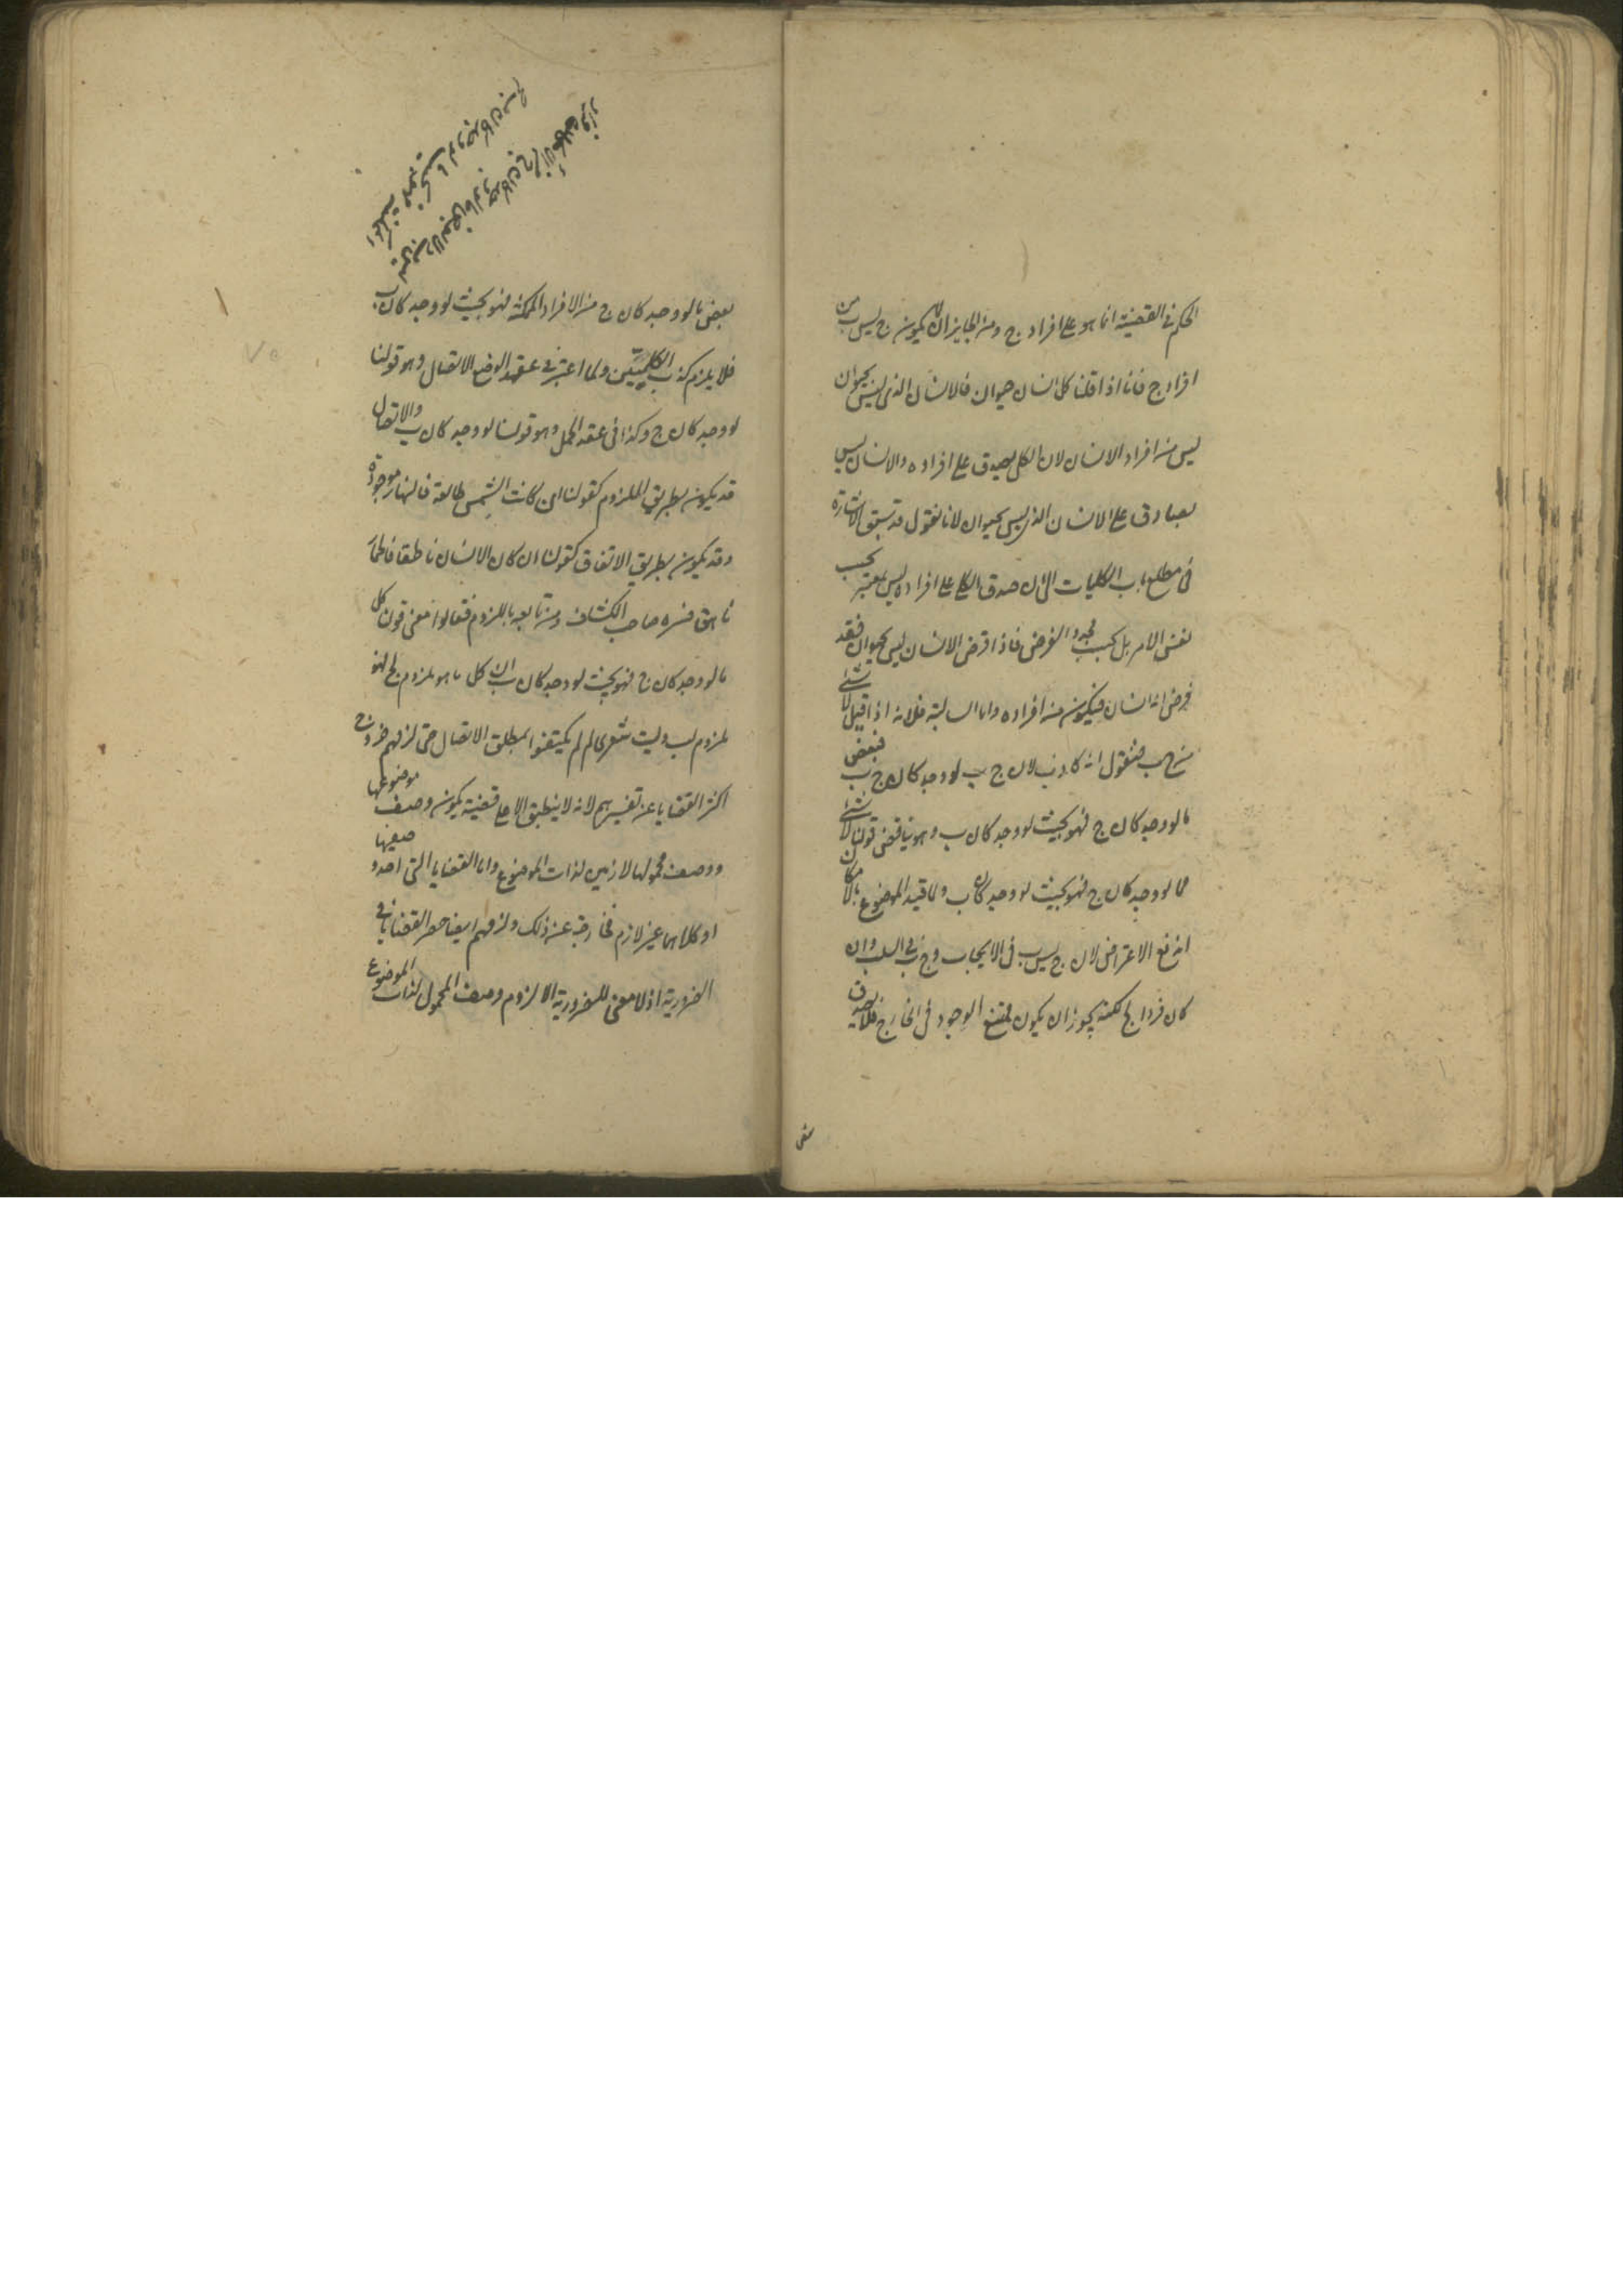 الحكم فى القضية انما هو على افراد ج ومن الجايز ان لا يكون ج ليس ب من
افراد ج فانا اذا قلنا كل انسان حيوان فالانسان الذى ليس بحيوان
ليس من افراد الانسان لان الكلى يصدق على افراده والانسان ليس
بصادق على الانسان الذى ليس بحيوان لانا نقول قد سبق الاشارة
فى مطلع باب الكليات الى ان صدق الكلى على افراده ليس بمعتبر بحسب
نفس الامر بل بحسب مجرد الفرض فاذا فرض الانسان ليس بحيوان فقد
فرض انه انسان فيكون من افراده واما السالبة فلانه اذا قيل لا شئ
من ج ب فنقول انه كاذب لان ج ب لو وجد كان ج ب فبعض
ما لو وجد كان ج فهو بحيث لو وجد كان ب وهو يناقض قولنا لا شئ
مما لو وجد كان ج فهو بحيث لو وجد كان ب ولما قيد الموضوع بالامكان
اندفع الاعتراض لان ج ليس ب فى الايجاب وج ب فى السلب وان
كان فردا لج لكنه يجوز ان يكون ممتنع الوجود فى الخارج فلا يصدق
بعض ما لو وجد كان ج من الافراد الممكنة فهو بحيث لو وجد كان ب
فلا يلزم كذب الكليتين ولما اعتبر فى عقد الوضع الاتصال وهو قولنا
لو وجد كان ج وكذا فى عقد الحمل وهو قولنا لو وجد كان ب والاتصال
قد يكون بطريق اللزوم كقولنا ان كانت الشمس طالعة فالنهار موجود
وقد يكون بطريق الاتفاق كقولنا ان كان الانسان ناطقا فالحمار
ناهق فسره صاحب الكشف ومن تابعه باللزوم فقالوا معنى قولنا كل
ما لو وجد كان ج فهو بحيث لو وجد كان ب ان كل ما هو ملزوم لج فهو
ملزوم لب وليت شعرى لم لم يكتفوا بمطلق الاتصال حتى لزمهم خروج
اكثر القضايا عن تفسيرهم لانه لا ينطبق الا على قضية يكون وصف موضوعها
ووصف محمولها لازمين لذات الموضوع واما القضايا التى احد وصفيها
او كلاهما غير لازم فخارجة عن ذلك ولزمهم ايضا حصر القضايا فى
الضرورية اذ لا معنى للضرورية الا لزوم وصف المحمول لذات الموضوع